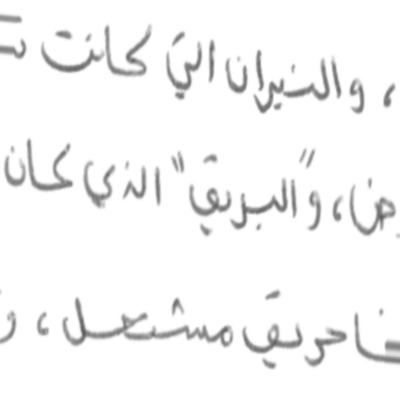 ، والنيران التي كانت
، و"البريق" الذي كان
حريق مشتعل، و